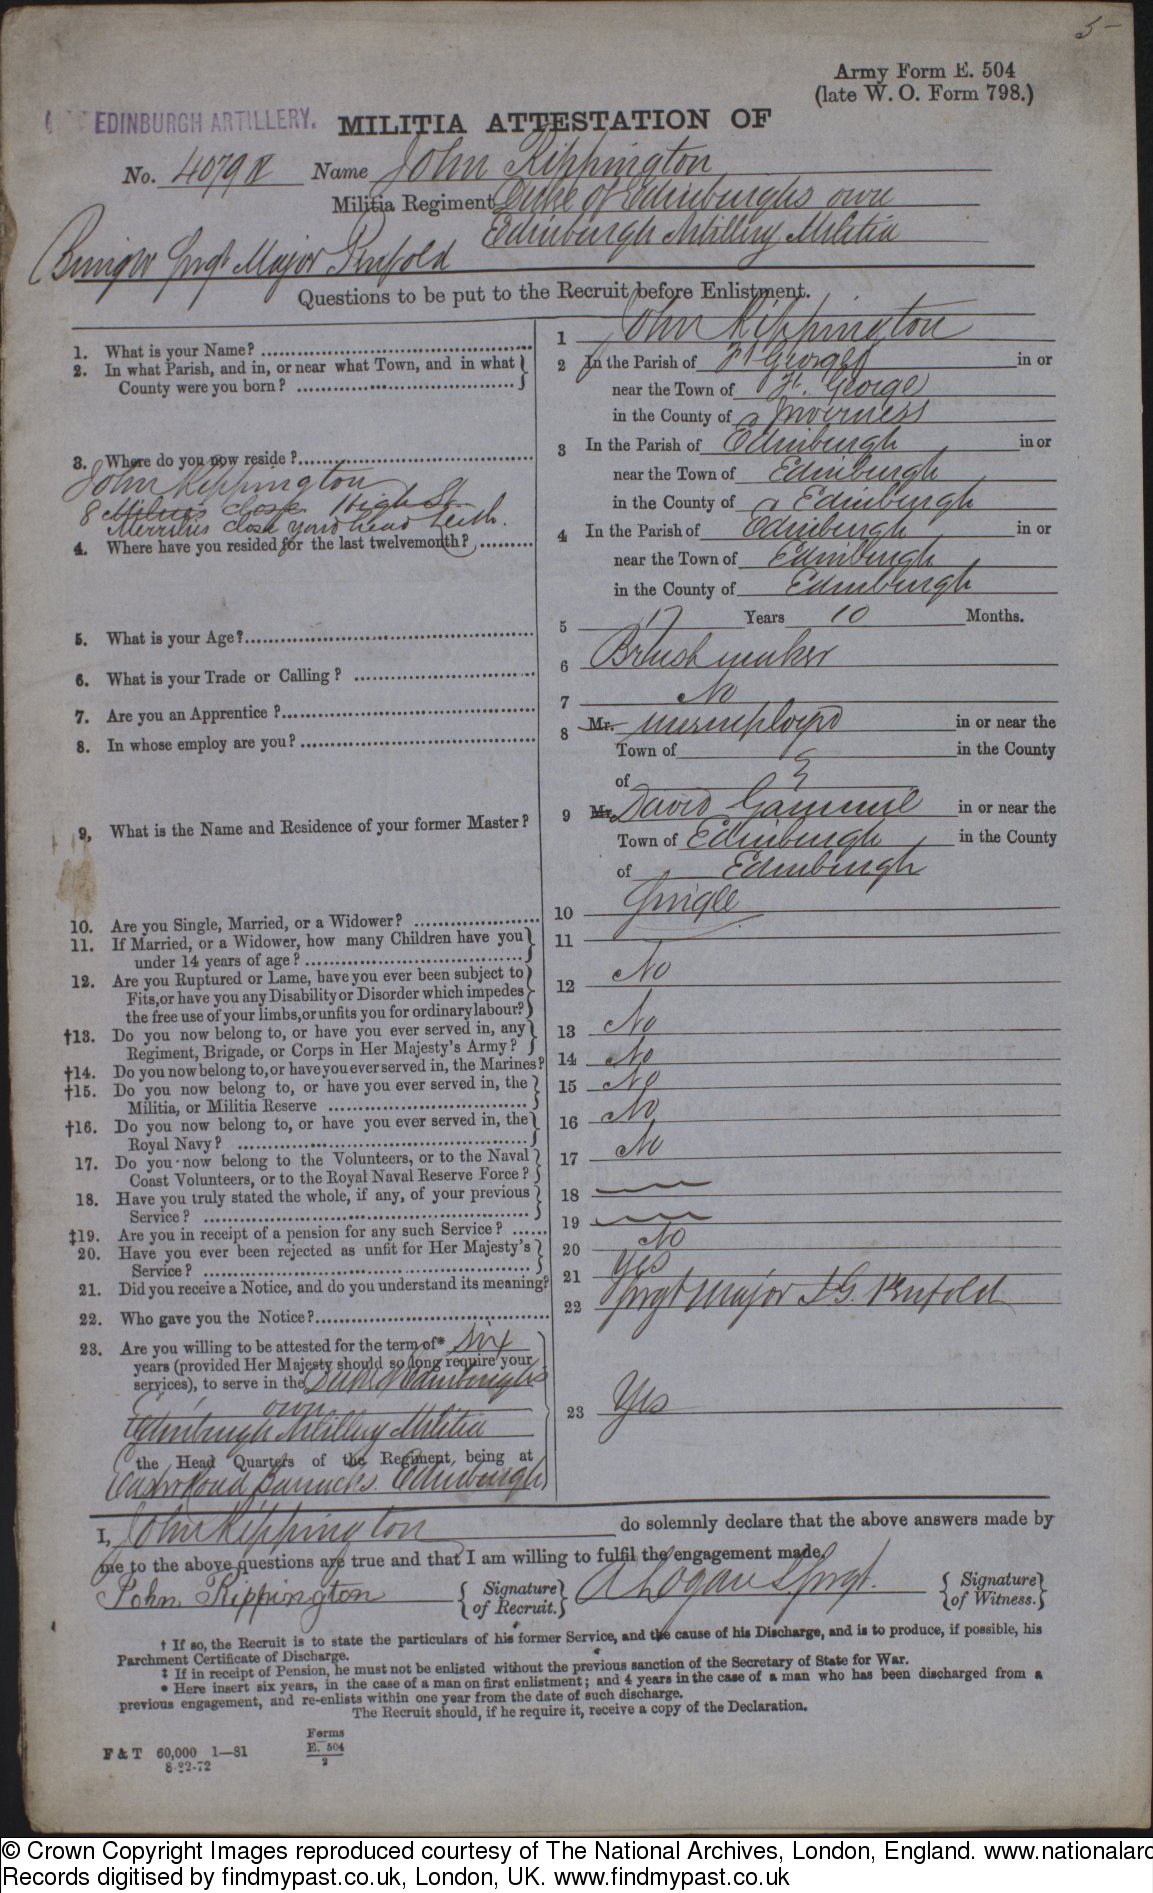 5-
Army Form E. 504
(late W. O. Form 798.)
EDINBURGH ARTILLERY.
MILITIA ATTESTATION OF
No. 4079 Name John Rippington
Militia Regiment Duke of Edinburghs own
Edinburgh Artillery Militia
Bringer Sergt Major Penfold
Questions to be put to the Recruit before Enlistment.
1. What is your Name? 1 John Rippington
2. In what Parish, and in, or near what Town, and in what County were you born? 2 In the Parish of Ft George in or
near the Town of Ft. George
in the County of Inverness
3. Where do you now reside? 3 In the Parish of Edinburgh in or
John Rippington near the Town of Edinburgh
8 Milnes Close High St in the County of Edinburgh
Merrilies Close Yard head Leith.
4. Where have you resided for the last twelvemonth? 4 In the Parish of Edinburgh in or
near the Town of Edinburgh
in the County of Edinburgh
5. What is your Age? 5 17 Years 10 Months.
6. What is your Trade or Calling? 6 Brush maker
7. Are you an Apprentice? 7 No
8. In whose employ are you? 8 Mr. unemployed in or near the
Town of in the County
of
9, What is the Name and Residence of your former Master? 9 Mr. David Gammie in or near the
Town of Edinburgh in the County
of Edinburgh
10. Are you Single, Married, or a Widower? 10 Single
11. If Married, or a Widower, how many Children have you under 14 years of age? 11
12. Are you Ruptured or Lame, have you ever been subject to Fits, or have you any Disability or Disorder which impedes the free use of your limbs, or unfits you for ordinary labour? 12 No
†13. Do you now belong to, or have you ever served in, any Regiment, Brigade, or Corps in Her Majesty's Army? 13 No
†14. Do you now belong to, or have you ever served in, the Marines? 14 No
†15. Do you now belong to, or have you ever served in, the Militia, or Militia Reserve 15 No
†16. Do you now belong to, or have you ever served in, the Royal Navy? 16 No
17. Do you now belong to the Volunteers, or to the Naval Coast Volunteers, or to the Royal Naval Reserve Force? 17 No
18. Have you truly stated the whole, if any, of your previous Service? 18
‡19. Are you in receipt of a pension for any such Service? 19
20. Have you ever been rejected as unfit for Her Majesty's Service? 20 No
21. Did you receive a Notice, and do you understand its meaning? 21 Yes
22. Who gave you the Notice? 22 Sergt Major J G. Penfold
23. Are you willing to be attested for the term of* Six
years (provided Her Majesty should so long require your
services), to serve in the Duke of Edinburghs
own 23 Yes
Edinburgh Artillery Militia
the Head Quarters of the Regiment being at
Easter Road Barracks. Edinburgh
I, John Rippington do solemnly declare that the above answers made by
me to the above questions are true and that I am willing to fulfil the engagement made.
John Rippington {Signature of Recruit.} A Logan Sergt. {Signature of Witness.}
† If so, the Recruit is to state the particulars of his former Service, and the cause of his Discharge, and is to produce, if possible, his
Parchment Certificate of Discharge.
‡ If in receipt of Pension, he must not be enlisted without the previous sanction of the Secretary of State for War.
* Here insert six years, in the case of a man on first enlistment; and 4 years in the case of a man who has been discharged from a
previous engagement, and re-enlists within one year from the date of such discharge.
The Recruit should, if he require it, receive a copy of the Declaration.
F & T 60,000 1—81
8-82-72
Forms
E. 504
2
© Crown Copyright Images reproduced courtesy of The National Archives, London, England. www.nationalarc
Records digitised by findmypast.co.uk, London, UK. www.findmypast.co.uk